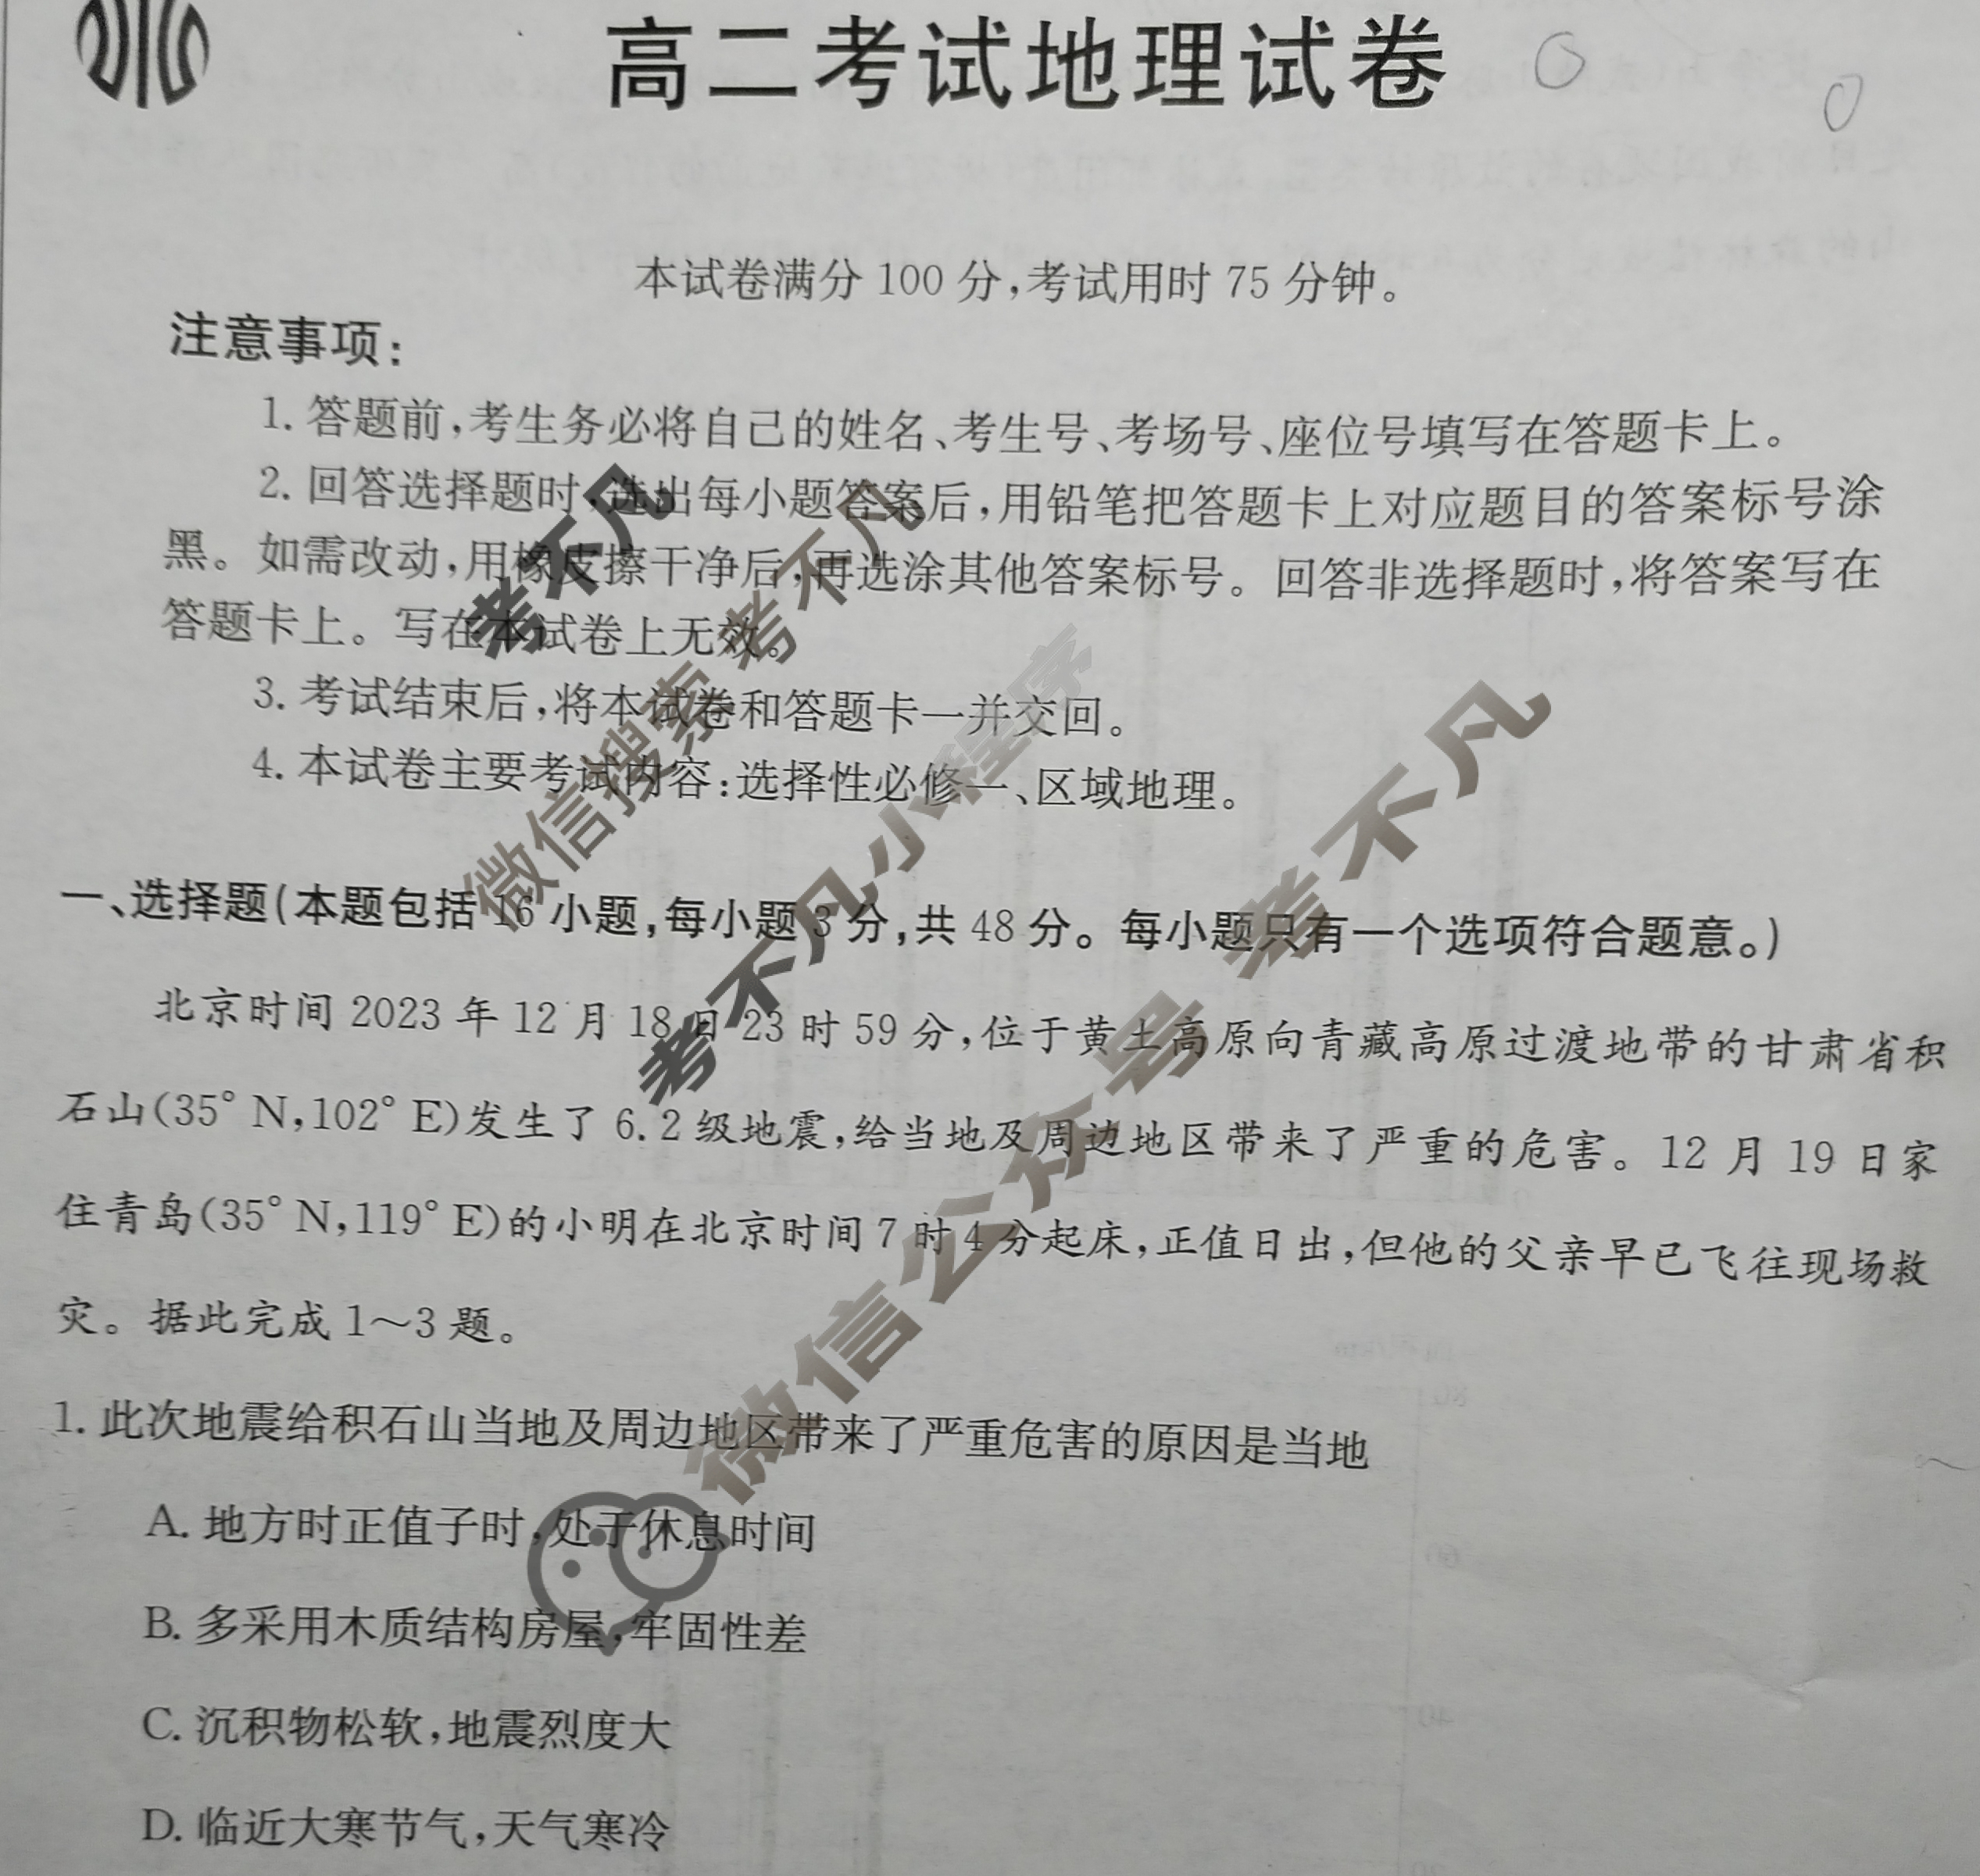 高二考试地理试卷
本试卷满分 100 分,考试用时 75 分钟。
注意事项:
1. 答题前,考生务必将自己的姓名、考生号、考场号、座位号填写在答题卡上。
2. 回答选择题时,选出每小题答案后,用铅笔把答题卡上对应题目的答案标号涂
黑。如需改动,用橡皮擦干净后,再选涂其他答案标号。回答非选择题时,将答案写在
答题卡上。写在本试卷上无效。
3. 考试结束后,将本试卷和答题卡一并交回。
4. 本试卷主要考试内容:选择性必修一、区域地理。
考不凡
微信搜索考不凡
考不凡小程序
微信公众号 考不凡
一、选择题(本题包括 16 小题,每小题 3 分,共 48 分。每小题只有一个选项符合题意。)
北京时间 2023 年 12 月 18 日 23 时 59 分,位于黄土高原向青藏高原过渡地带的甘肃省积
石山(35° N,102° E)发生了 6.2 级地震,给当地及周边地区带来了严重的危害。12 月 19 日家
住青岛(35° N,119° E)的小明在北京时间 7 时 4 分起床,正值日出,但他的父亲早已飞往现场救
灾。据此完成 1～3 题。
1. 此次地震给积石山当地及周边地区带来了严重危害的原因是当地
A. 地方时正值子时,处于休息时间
B. 多采用木质结构房屋,牢固性差
C. 沉积物松软,地震烈度大
D. 临近大寒节气,天气寒冷